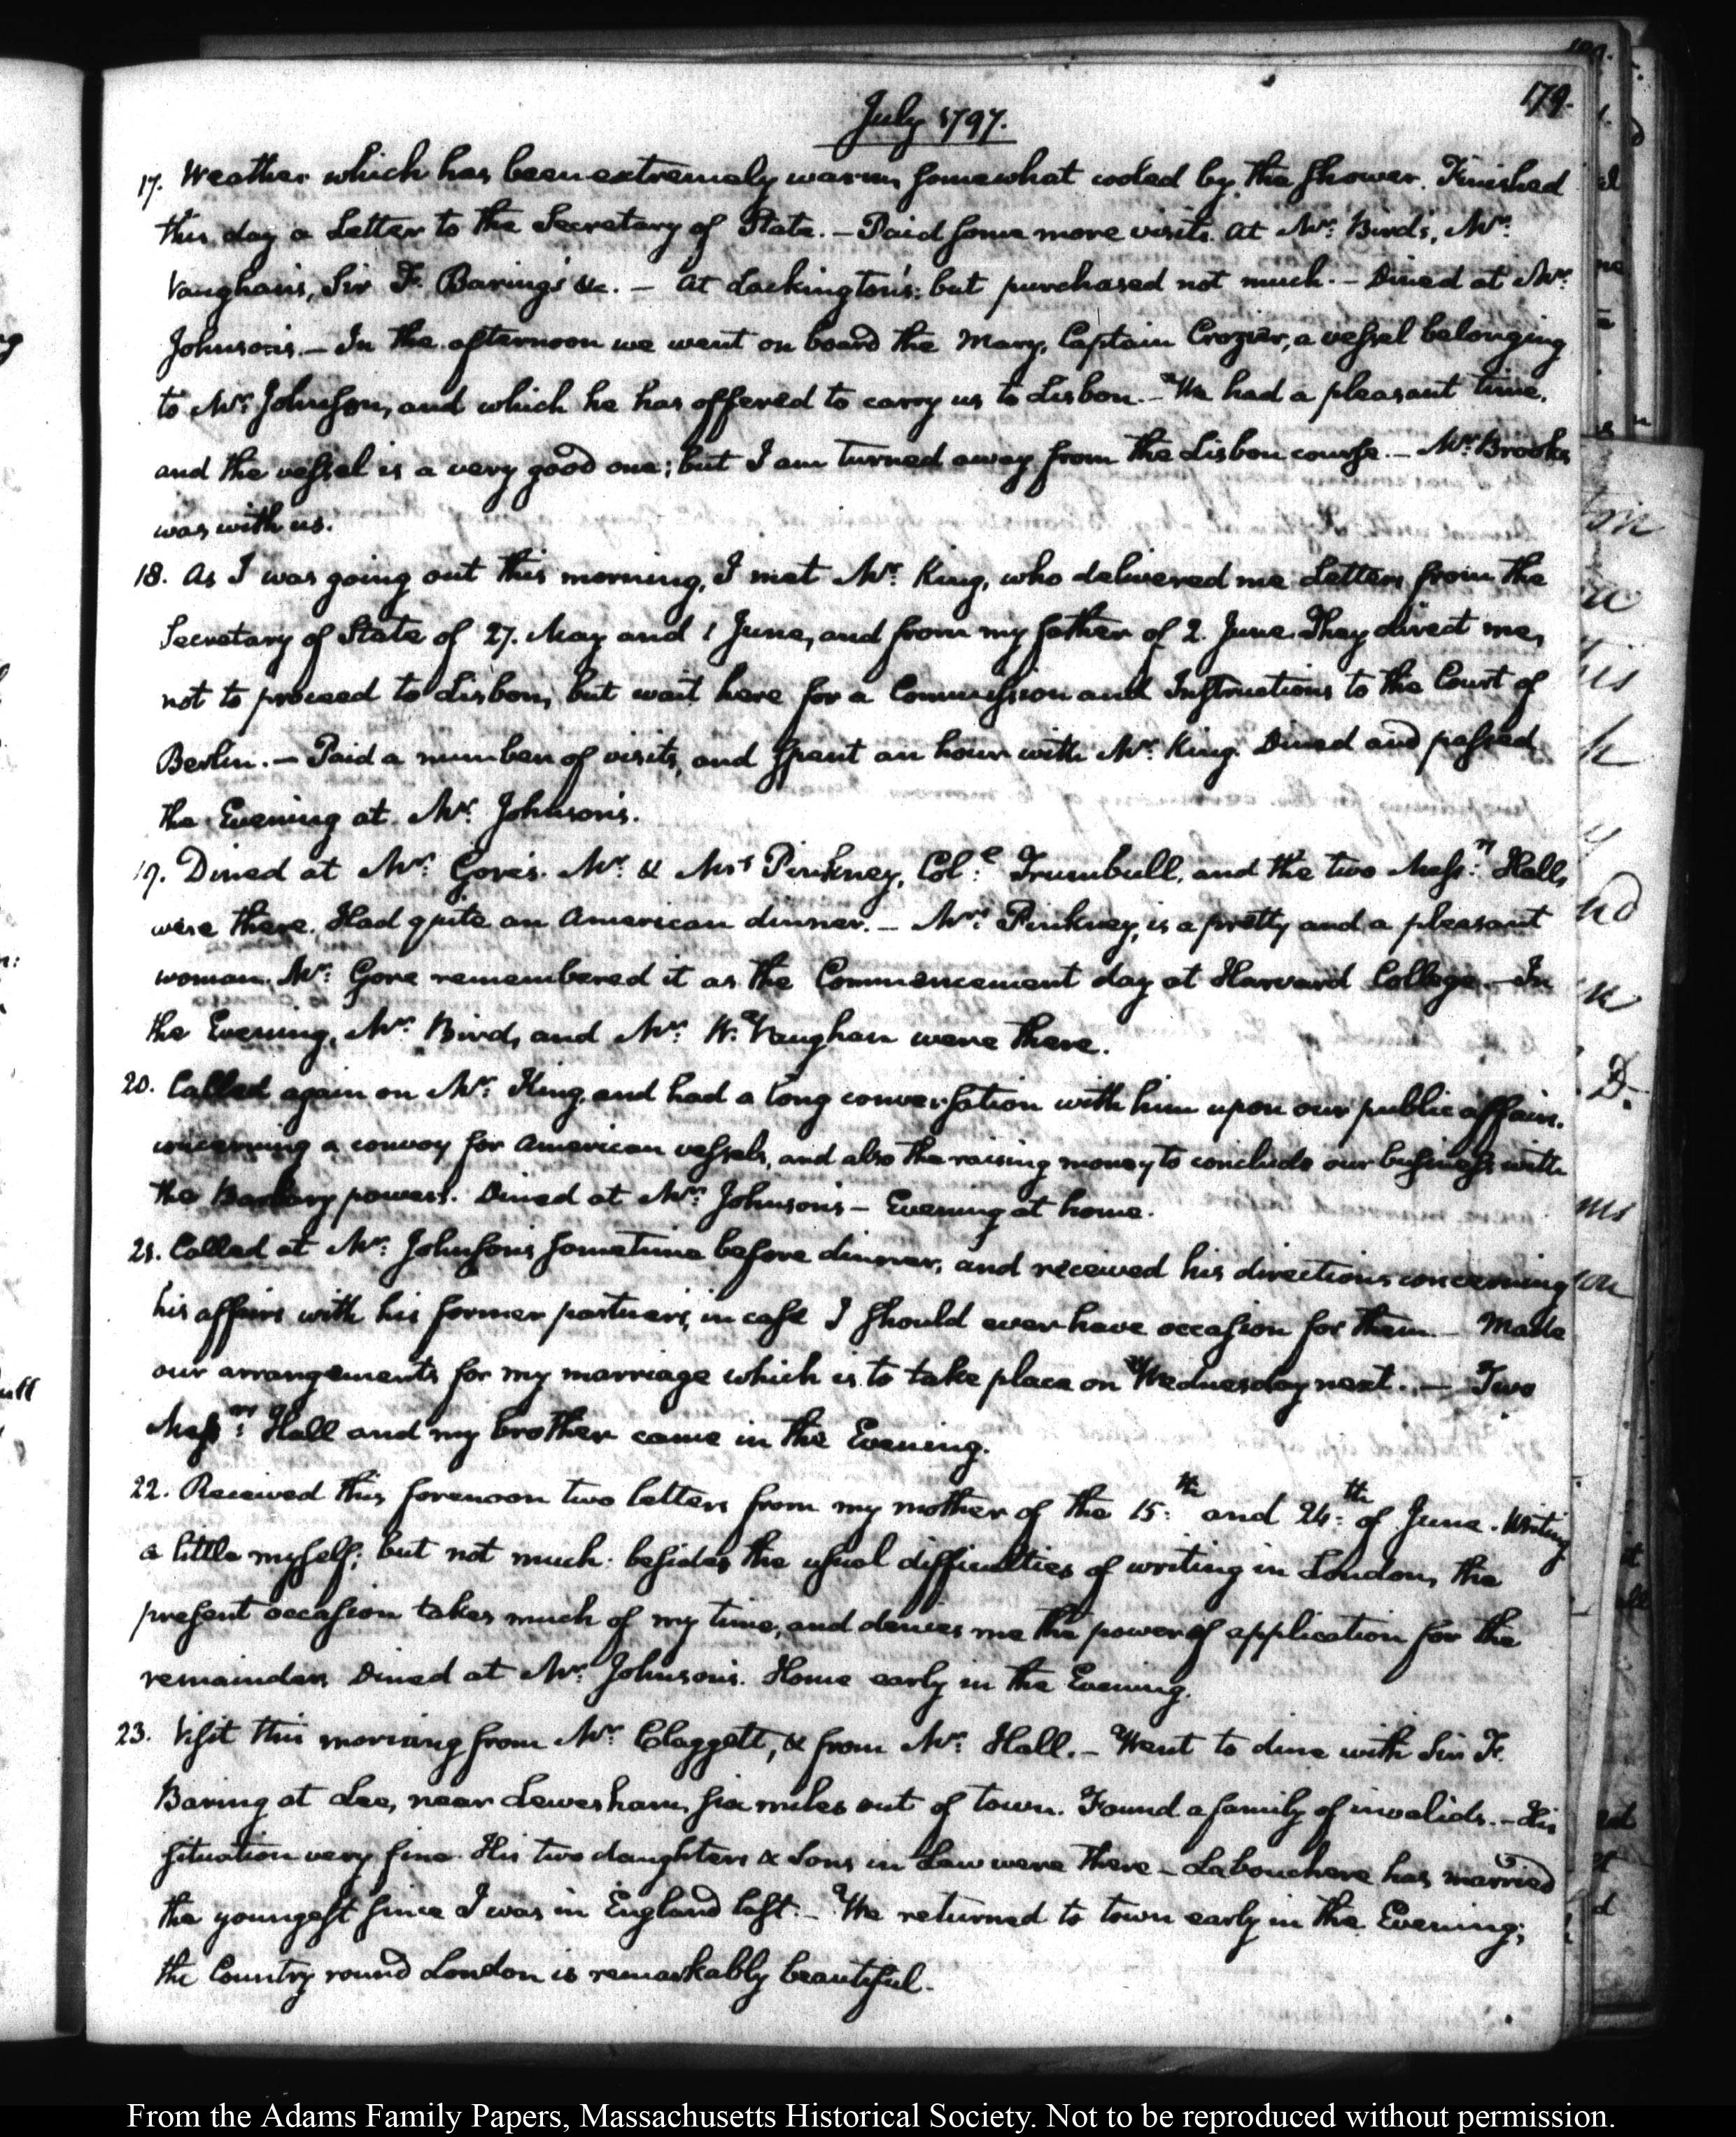 179.
July 1797.
17. Weather which has been extremely warm, somewhat cooled by the shower. Finished
this day a Letter to the Secretary of State. — Paid some more visits. At Mr: Bird's, Mr:
Vaughan's, Sir F. Baring's &c. — At Lackington's: but purchased not much. — Dined at Mr:
Johnson's. — In the afternoon we went on board the Mary, Captain Crozier, a vessel belonging
to Mr: Johnson, and which he has offered to carry us to Lisbon. — We had a pleasant time,
and the vessel is a very good one; but I am turned away from the Lisbon course. — Mr: Brooks
was with us.
18. As I was going out this morning, I met Mr: King, who delivered me Letters from the
Secretary of State of 27. May and 1 June, and from my father of 2. June. They direct me,
not to proceed to Lisbon, but wait here for a Commission and Instructions to the Court of
Berlin. — Paid a number of visits, and spent an hour with Mr: King. Dined and passed
the Evening at Mr: Johnson's.
19. Dined at Mr: Gore's. Mr: & Mrs Pinkney, Col:l Trumbull, and the two Mess:rs Halls
were there. Had quite an American dinner. — Mrs: Pinkney, is a pretty and a pleasant
woman. Mr: Gore remembered it as the Commencement day at Harvard College. — In
the Evening, Mr: Bird, and Mr: W. Vaughan were there.
20. Called again on Mr: King, and had a long conversation with him upon our public affairs.
concerning a convoy for American vessels, and also the raising money to conclude our business with
the Barbary powers. Dined at Mr: Johnson's — Evening at home.
21. Called at Mr: Johnson's sometime before dinner, and received his directions concerning
his affairs with his former partners, in case I should ever have occasion for them. — Made
our arrangements for my marriage which is to take place on Wednesday next. — Two
Mess:rs Hall and my brother came in the Evening.
22. Received this forenoon two letters from my mother of the 15:th and 24:th of June. Writing
a little myself; but not much. besides the usual difficulties of writing in London, the
present occasion takes much of my time, and denies me the power of application for the
remainder. Dined at Mr: Johnson's. Home early in the Evening.
23. Visit this morning from Mr: Claggett, & from Mr: Hall. — Went to dine with Sir F.
Baring at Lee, near Lewesham, six miles out of town. Found a family of invalids. — His
situation very fine. His two daughters & Sons in Law were there — Labouchere has married
the youngest since I was in England last. — We returned to town early in the Evening;
the Country round London is remarkably beautiful.
From the Adams Family Papers, Massachusetts Historical Society. Not to be reproduced without permission.